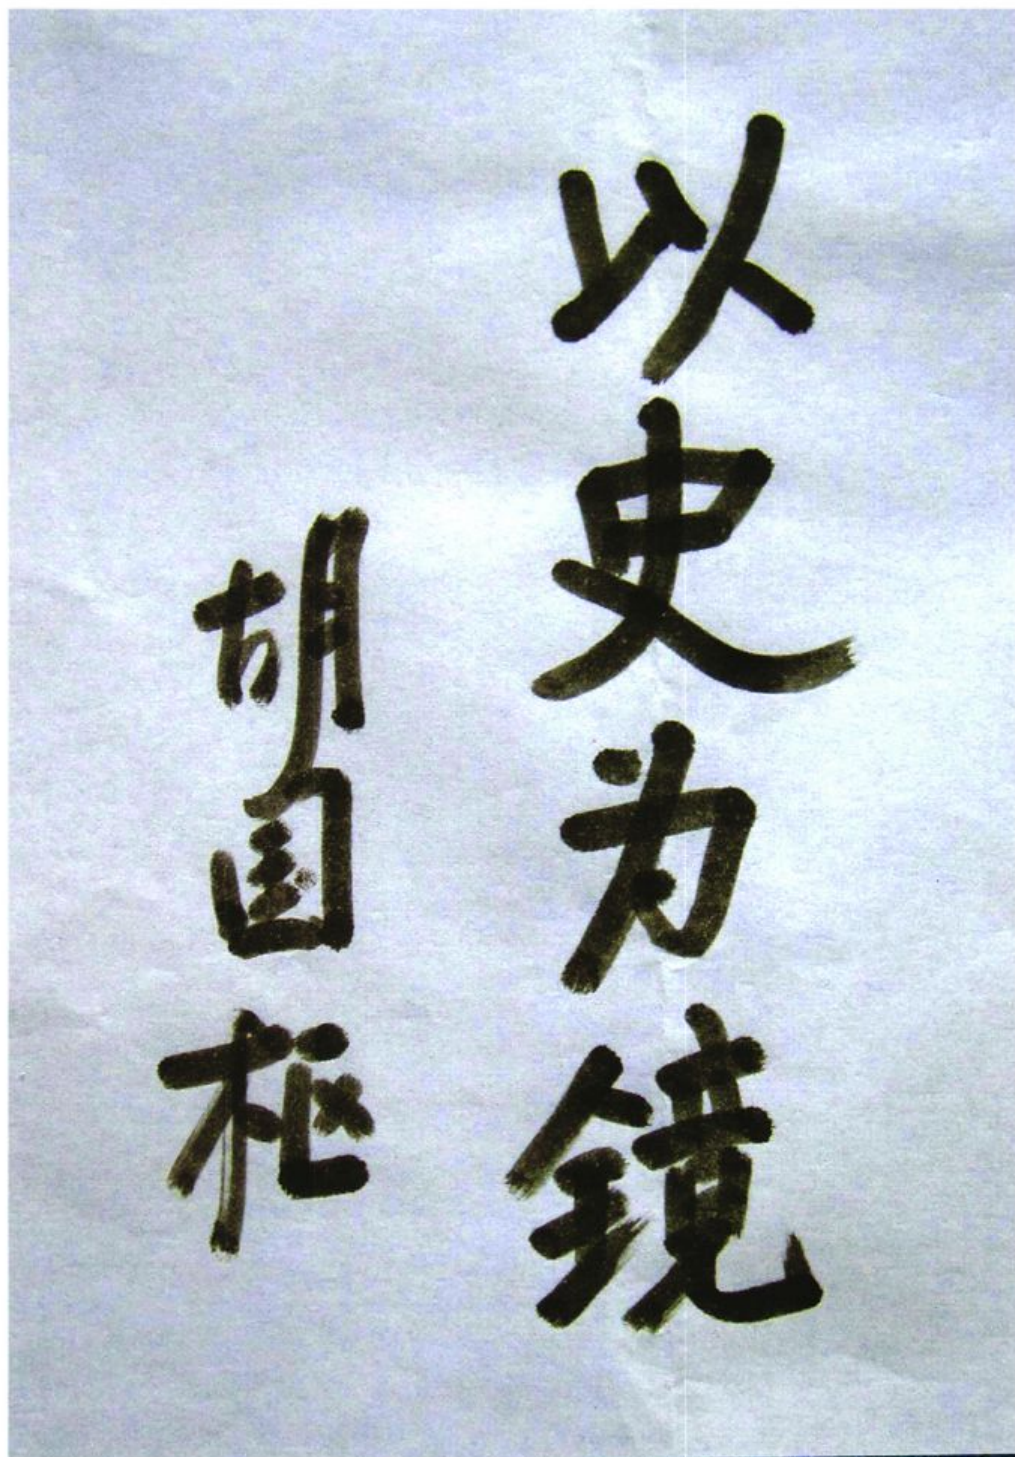 以史为镜
胡国枢